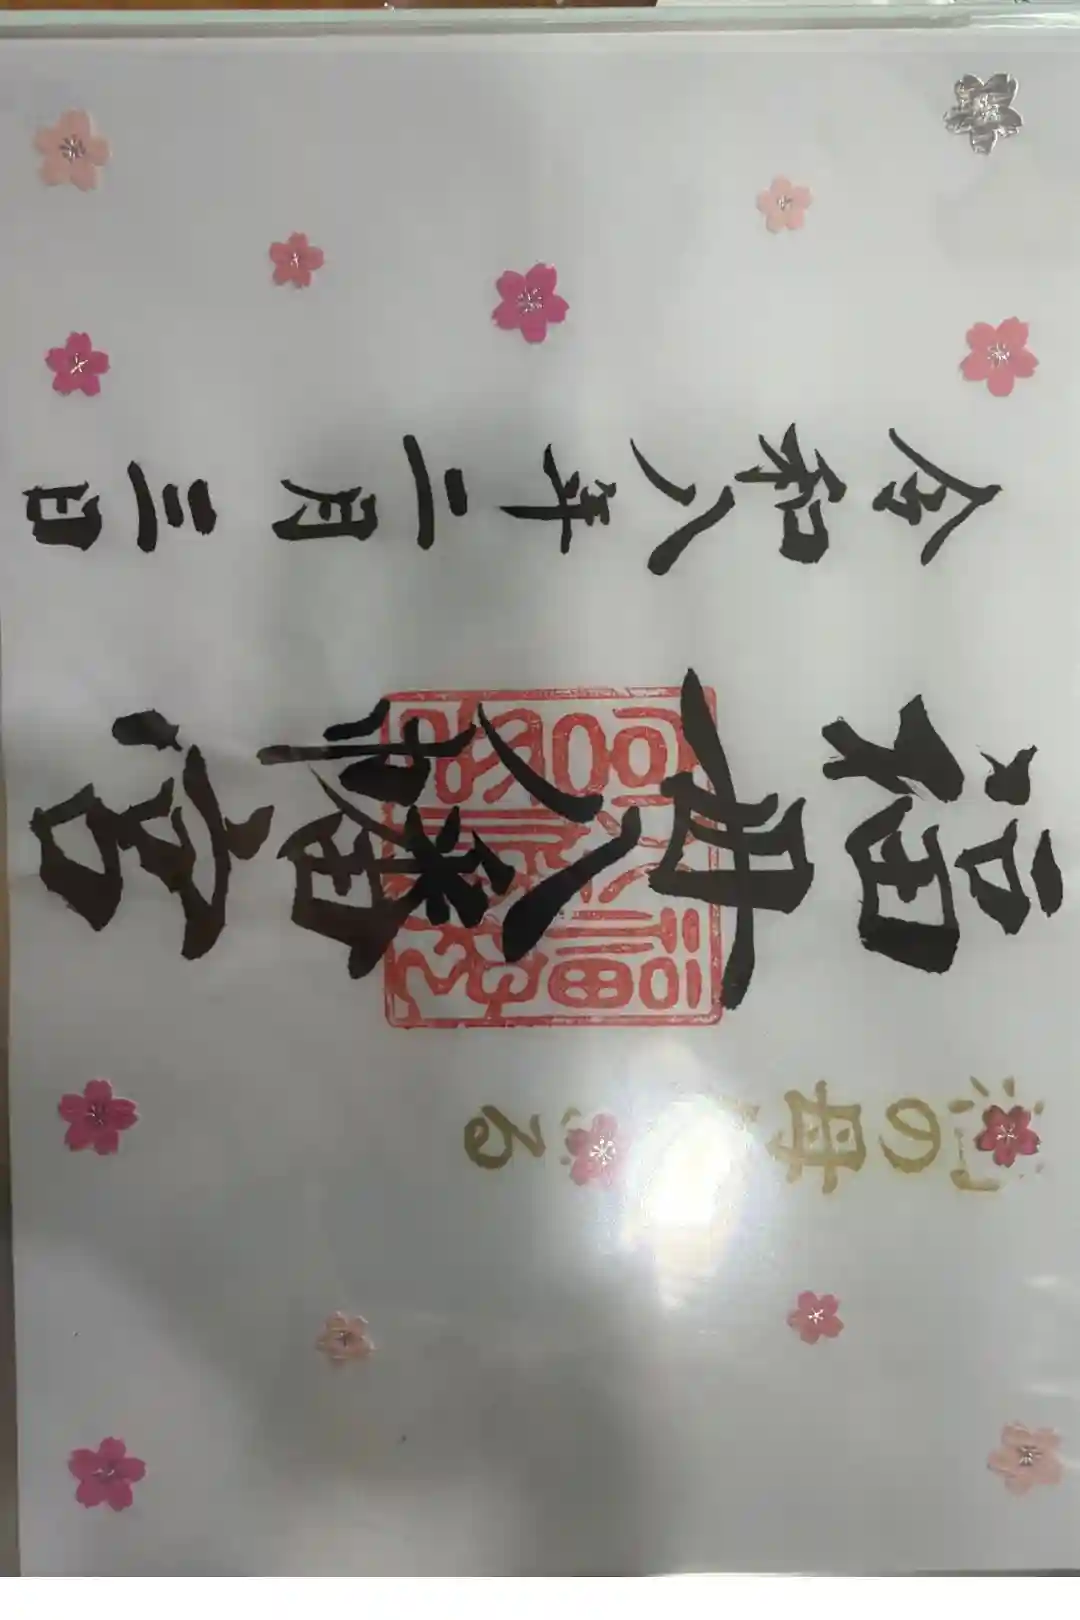 の母 る
福井八幡宮
令和八年二月三日